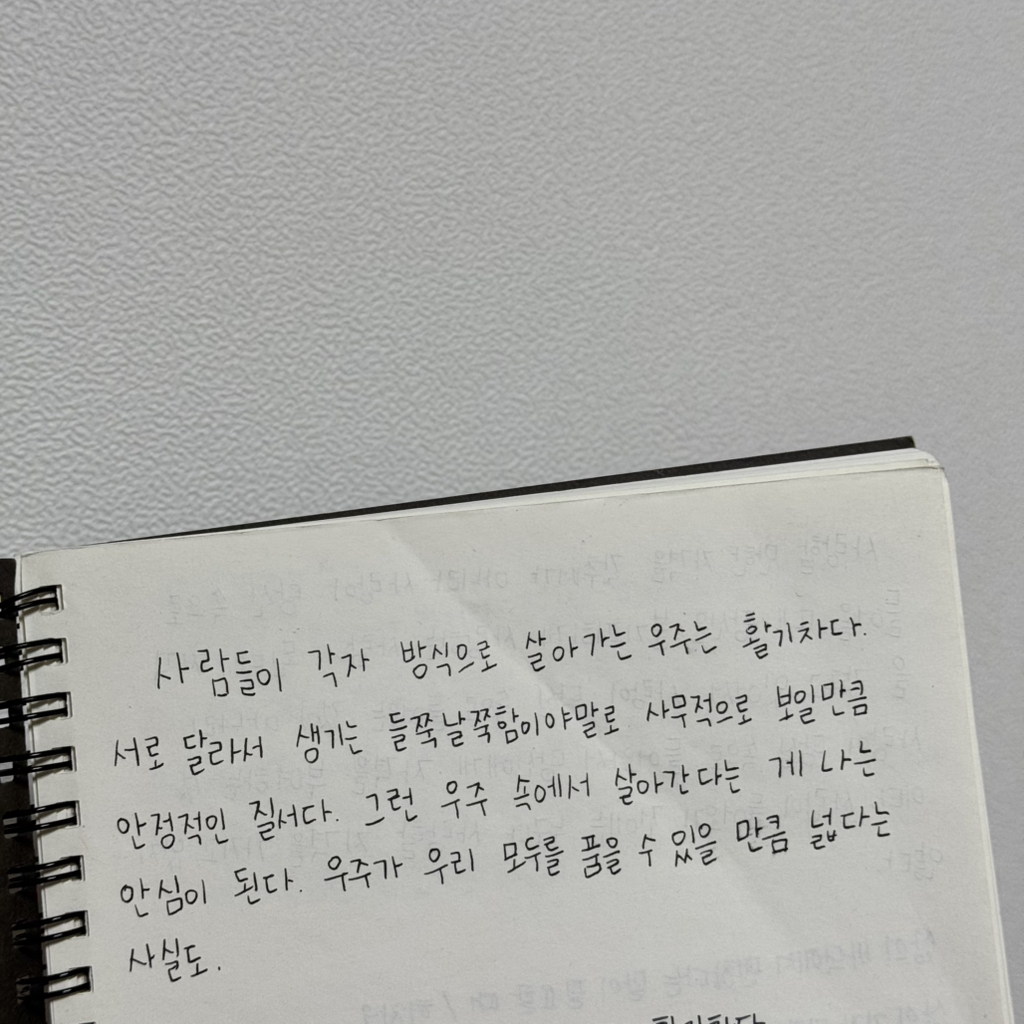 사람들이 각자 방식으로 살아가는 우주는 활기차다.
서로 달라서 생기는 들쭉날쭉함이야말로 사무적으로 보일만큼
안정적인 질서다. 그런 우주 속에서 살아간다는 게 나는
안심이 된다. 우주가 우리 모두를 품을 수 있을 만큼 넓다는
사실도.